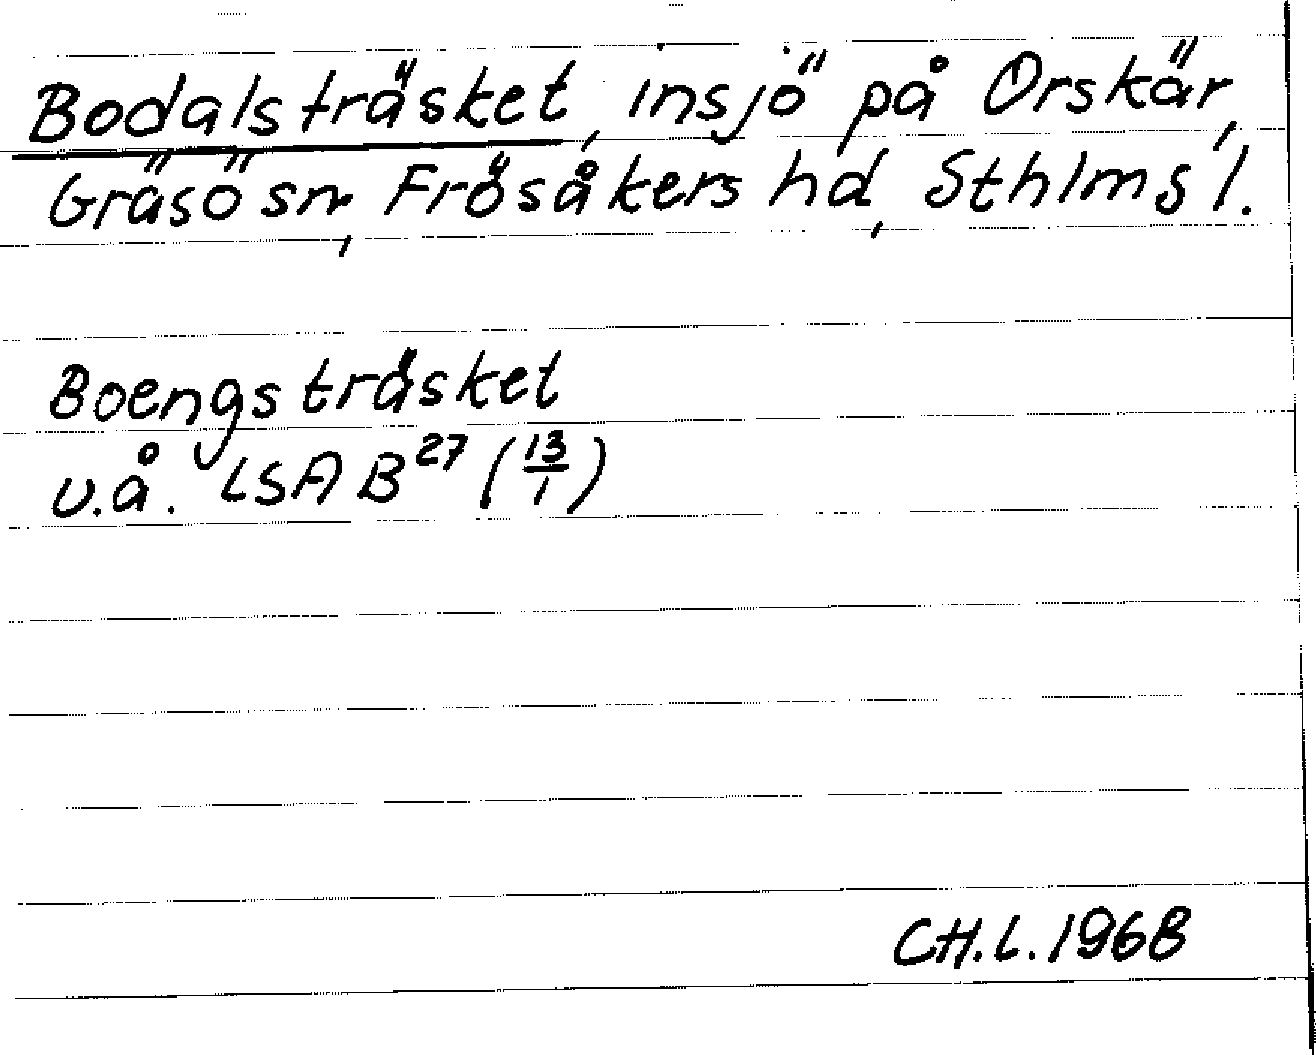 Bodalsträsket, insjö på Örskär,
Gräsö sn, Frösåkers hd, Sthlms l.
Boengsträsket
u.å. LSA B²⁷ (13/1)
CH.L. 1968